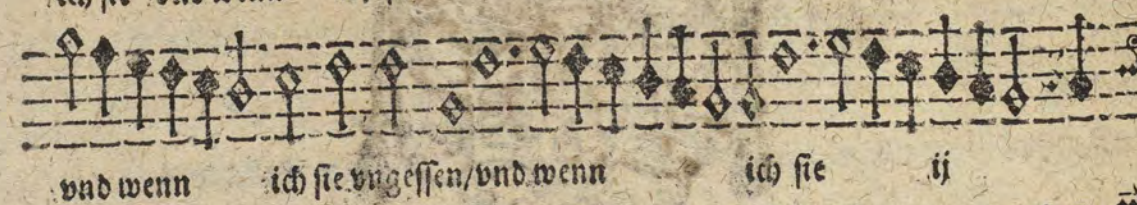 vnd wenn ich sie vngessen/vnd wenn ich sie ij